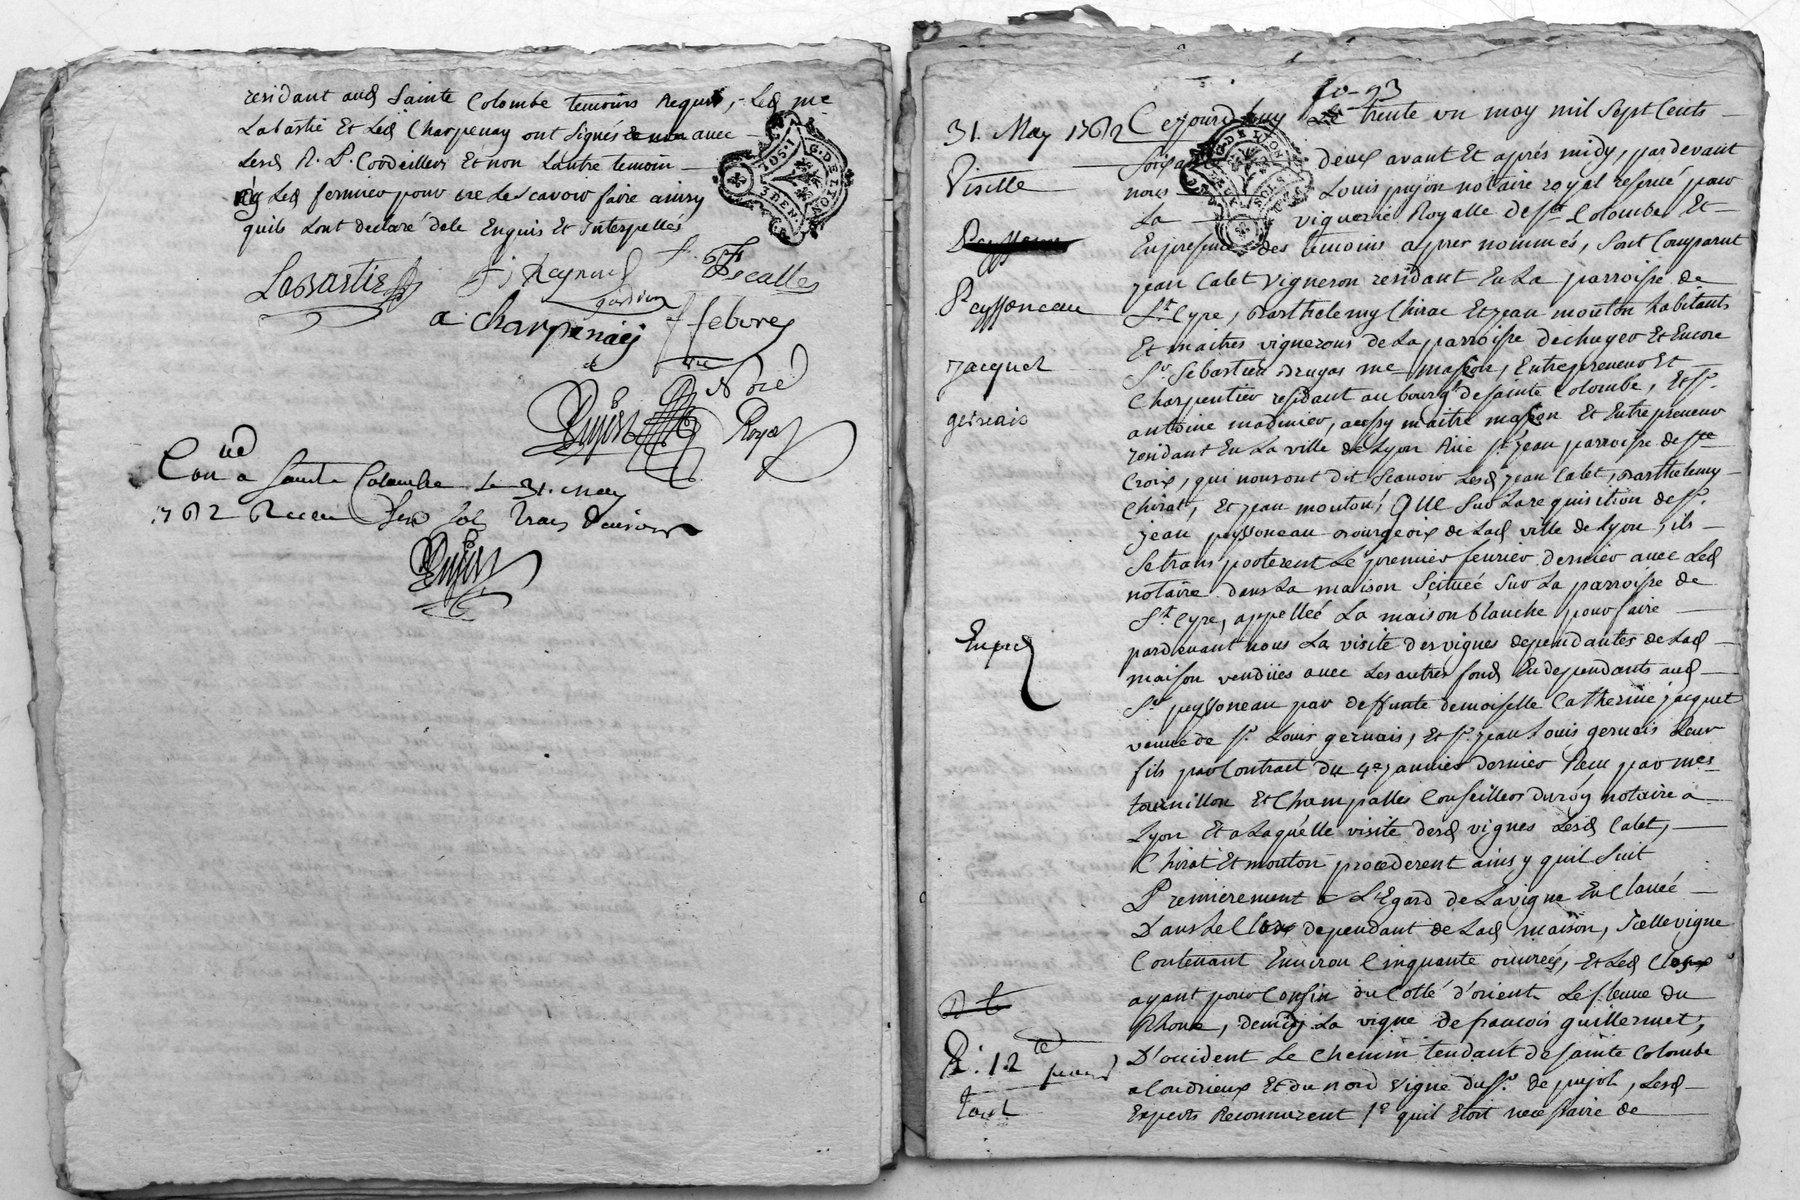 residant aud Sainte Colombe temoins Requis, Led me
Labastie Et Led Charpenay ont Signés avec
Lesd R. P. Cordeillers Et non Lautre temoin
Led fermier pour ne Le Scavoir faire ainsy
quils Lont declaré dele Enquis Et Interpellés
Labastie
f. j. Reynaud
gardien
a charpenay
f febvre
Pujos
Nore
Royal
Con.lé a Sainte Colombe Le 31. May
1762 Receu Sols
Pujos
31. May 1762
Visitte
Peyssoneau
Jacquet
gervais
Exped
Tout
fo. 93
Cejourdhuy trente un may mil Sept Cents
Soixante Deux avant Et aprés midy, pardevant
nous Louis pujos notaire royal reservé pour
La viguerie Royalle de Ste Colombe Et
Enpresence des temoins apprés nommés, Sont Comparut
jean Calet vigneron residant En La parroisse de
St. Cyre, Barthelemy Chirat Et jean mouton habitants
Et maitres vignerons de La parroisse de chuyer Et Encore
Sr. Sebastien Drugas me masson, Entrepreneur Et
Charpentier residant au bourg de Sainte Colombe, Et Sr.
antoine madinier, aussy maitre masson Et Entrepreneur
residant En La ville de Lyon Rüe St. jean parroisse de Ste
Croix, qui nous ont dit Scavoir Lesd jean Calet, Barthelemy
Chirat, Et jean mouton, QUE Sur La requisition de Sr.
jean peyssoneau Bourgeois de Lad ville de Lyon, ils
Se transporterent Le premier fevrier dernier avec Led
notaire dans La maison Scituée Sur La parroisse de
St. Cyre, appellée La maison blanche pour faire
pardevant nous La visite des vignes dependantes de Lad
maison vendües avec Les autres fonds En dependants aud
Sr. peyssoneau par deffunte demoiselle Catherine jacquet
veuve de Sr. Louis gervais, Et Sr. jean Louis gervais Leur
fils par Contract du 4e. janvier dernier Receu par mes
tournillon Et Champalles Conseillers du roy notaire a
Lyon Et a Laquelle visite desd vignes Lesd Calet,
Chirat Et mouton procederent ainsy quil Suit
Premierement a L'Egard de La vigne Enclavée
Dans Le Clos dependant de Lad maison, Icelle vigne
Contenant Environ Cinquante ouvrées, Et Led Clos
ayant pour Confin du Cotté d'orient Le fleuve du
Rhone, demidy La vigne de francois guillermet,
D'occident Le Chemin tendant de Sainte Colombe
a Condrieux Et du Nord vigne du Sr. de pujol, Lesd
Experts Reconnurent 1o quil Etoit necessaire de